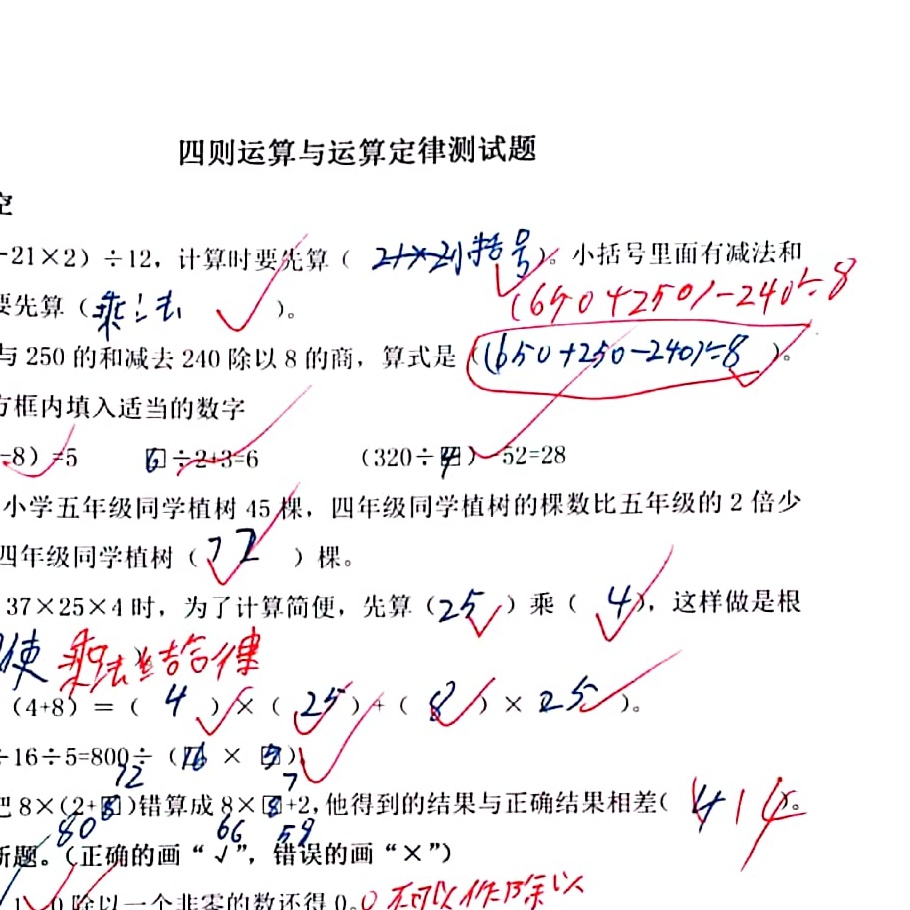 四则运算与运算定律测试题
空
-21×2）÷12，计算时要先算（ 小括号 ）。小括号里面有减法和
要先算（ 乘法 ）。
(650+250)-240÷8
与 250 的和减去 240 除以 8 的商，算式是（(650+250-240)÷8 ）。
方框内填入适当的数字
-8）=5 6÷2+3=6 （320÷4）-52=28
小学五年级同学植树 45 棵，四年级同学植树的棵数比五年级的 2 倍少
四年级同学植树（ 72 ）棵。
37×25×4 时，为了计算简便，先算（25 ）乘（ 4），这样做是根
使 乘法结合律
（4+8）＝（ 4 ）×（ 25 ）+（ 8 ）× 25 ）。
÷16÷5=800÷（16 × 5）
12 7
把 8×(2+□)错算成 8×□+2，他得到的结果与正确结果相差( 4 14 )。
80 66 59
断题。（正确的画“√”，错误的画“×”）
1、0 除以一个非零的数还得 0。0不可以作除以